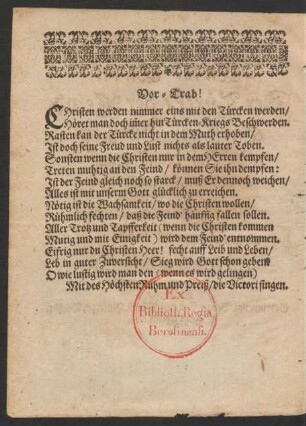 Vor-Trab!
CHristen werden nimmer eins mit den Türcken werden/
Höret man doch im̃er hin Türcken-Kriegs Beschwerden.
Rasten kan der Türcke nicht in dem Muth erhoben/
Ist doch seine Freud und Lust nichts als lauter Toben.
Sonsten wenn die Christen nur in dem HErren kempfen/
Treten muhtig an den Feind/ können Sie ihn dempfen:
Ist der Feind gleich noch so starck/ muß Er dennoch weichen/
Alles ist mit unserm Gott glücklich zu erreichen.
Nötig ist die Wachsamkeit/ wo die Christen wollen/
Rühmlich fechten/ daß die Feind' häuffig fallen sollen.
Aller Trotz und Tapfferkeit (wenn die Christen kommen
Mutig und mit Einigkeit) wird dem Feind' entnommen.
Eifrig nur du Christen Heer! fecht auff Leib und Leben/
Leb in guter Zuversicht/ Sieg wird Gott schon geben
O wie lustig wird man den (wenn es wird gelingen)
Mit des Höchsten Ruhm und Preiß/ die Victori singen.
Ex
Biblioth. Regia
Berolinenſi.